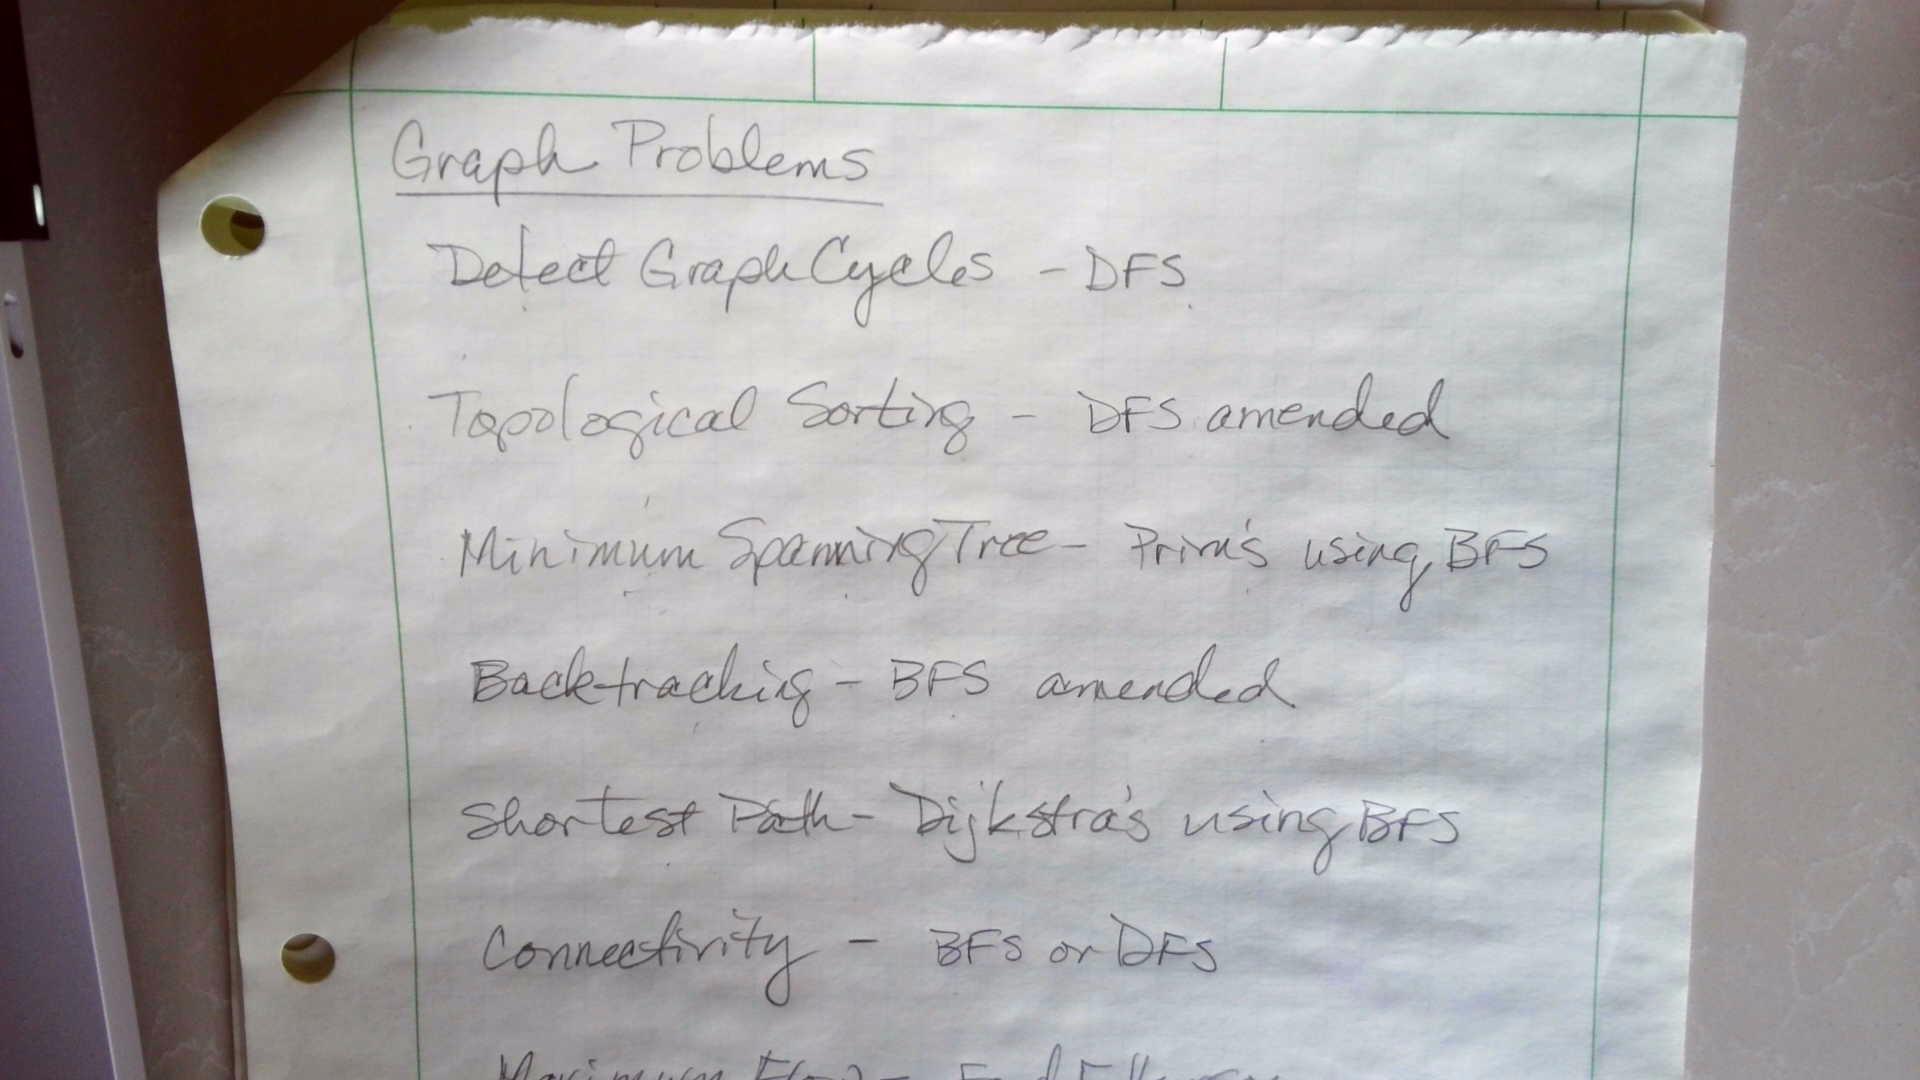 Graph Problems
Detect Graph Cycles - DFS
Topological Sorting - DFS amended
Minimum Spanning Tree - Prim's using BFS
Backtracking - BFS amended
Shortest Path - Dijkstra's using BFS
Connectivity - BFS or DFS
Maximum Flow -